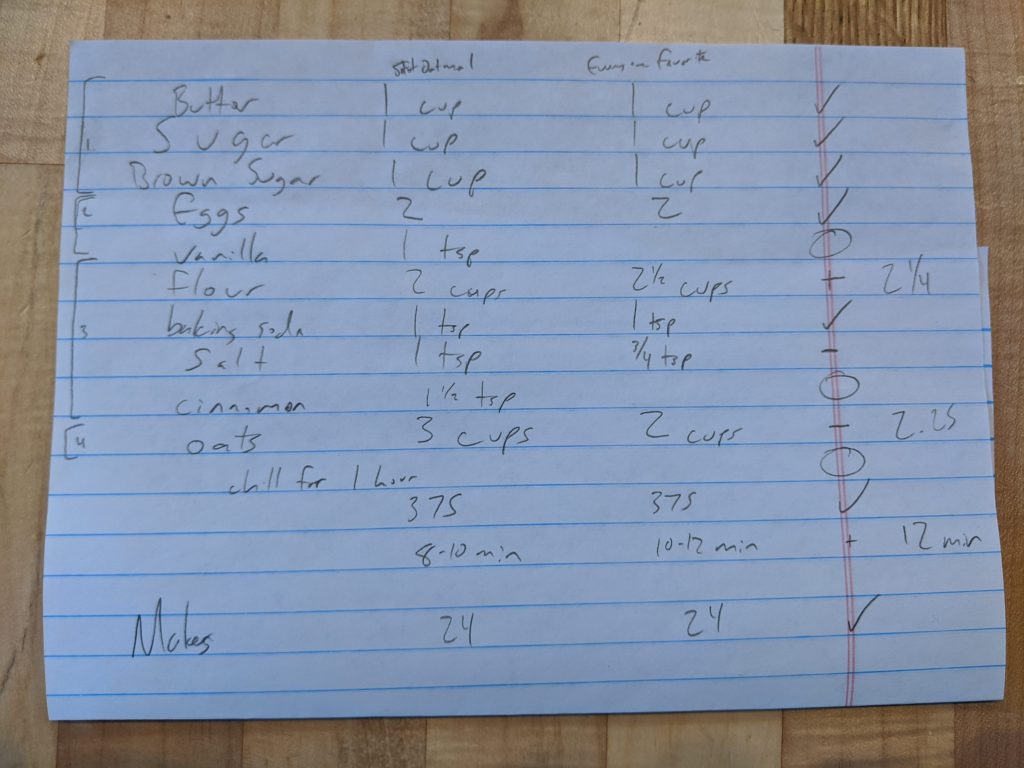 Soft Oatmeal Everyone Favorite
Butter 1 cup 1 cup ✓
1 Sugar 1 cup 1 cup ✓
Brown Sugar 1 cup 1 cup ✓
2 Eggs 2 2 ✓
vanilla 1 tsp
flour 2 cups 2 1/2 cups + 2 1/4
3 baking soda 1 tsp 1 tsp ✓
Salt 1 tsp 3/4 tsp -
cinnamon 1 1/2 tsp
4 oats 3 cups 2 cups - 2.25
chill for 1 hour
375 375 ✓
8-10 min 10-12 min + 12 min
Makes 24 24 ✓